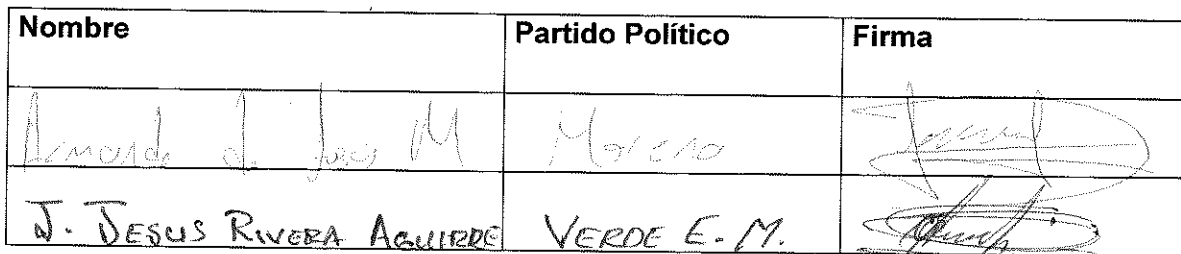 Nombre Partido Político Firma
Armando M Morena
J. JESUS RIVERA AGUIRRE VERDE E. M.